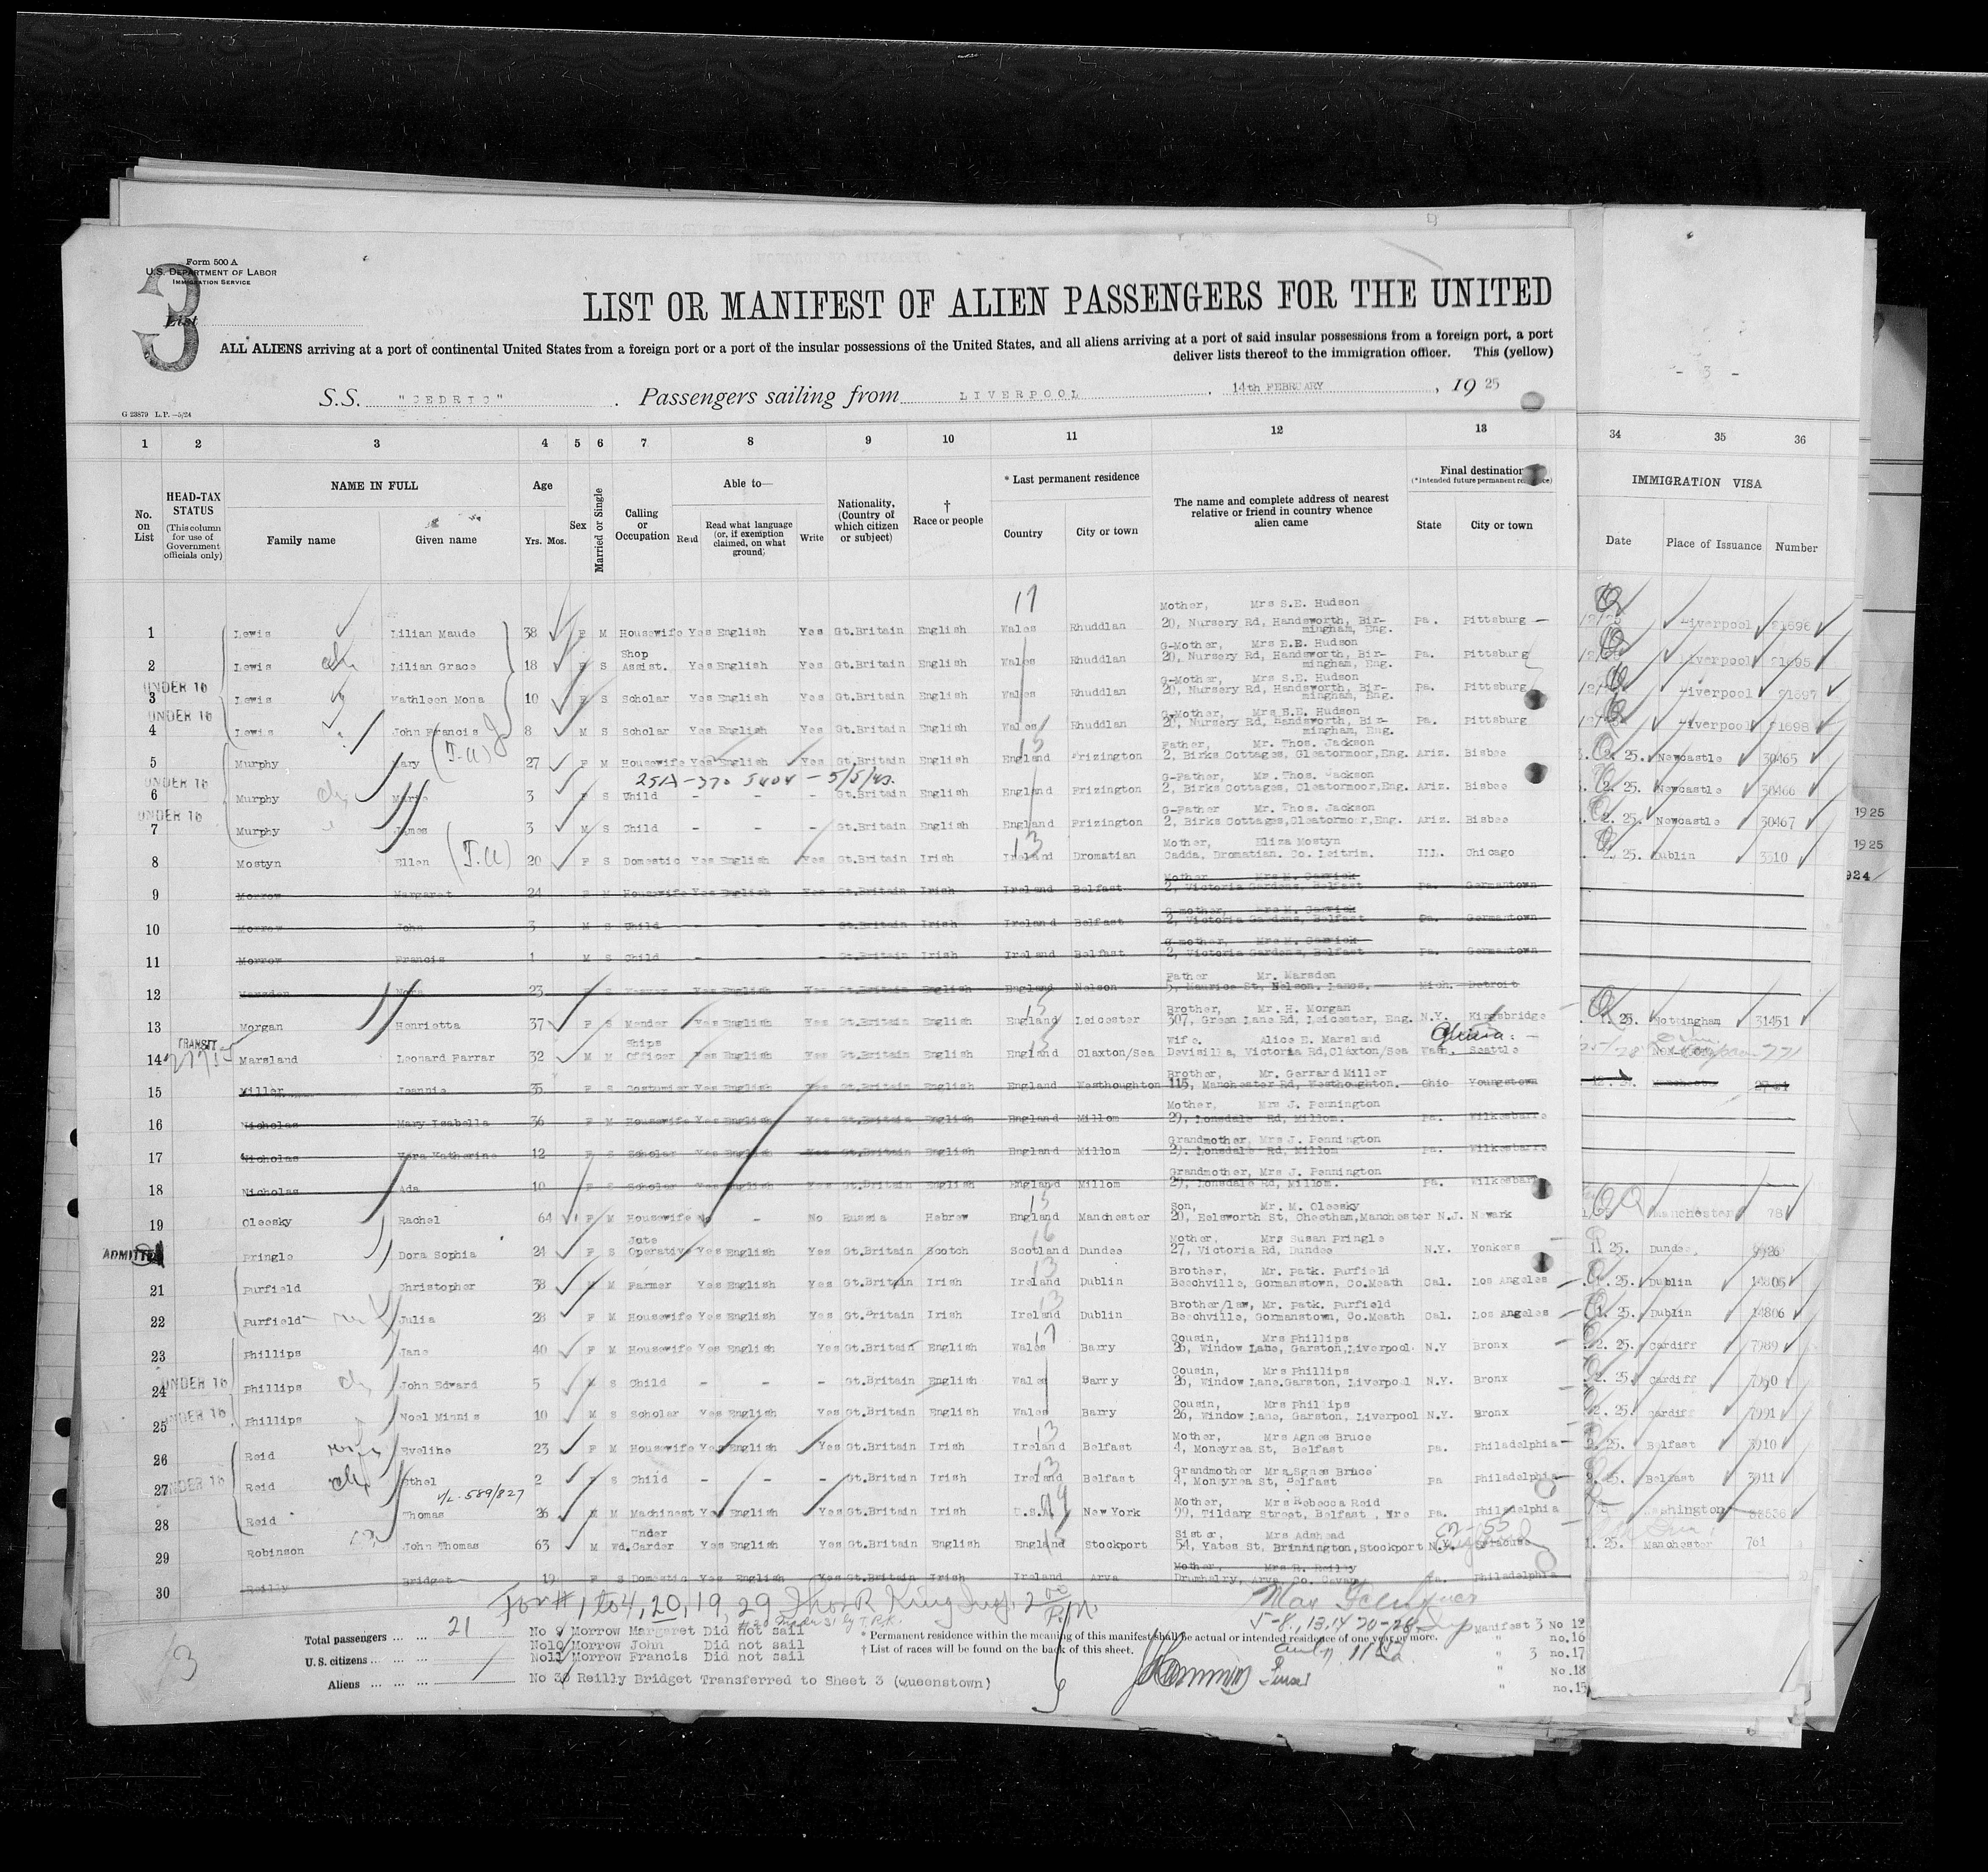 Form 500 A
U.S. DEPARTMENT OF LABOR
IMMIGRATION SERVICE
3
List
LIST OR MANIFEST OF ALIEN PASSENGERS FOR THE UNITED
ALL ALIENS arriving at a port of continental United States from a foreign port or a port of the insular possessions of the United States, and all aliens arriving at a port of said insular possessions from a foreign port, a port
deliver lists thereof to the immigration officer. This (yellow)
- 3 -
S.S. "CEDRIC". Passengers sailing from LIVERPOOL, 14th FEBRUARY, 1925
G 23879 L.P.—5/24
1 2 3 4 5 6 7 8 9 10 11 12 13 34 35 36
No. on List
HEAD-TAX STATUS (This column for use of Government officials only)
NAME IN FULL
Family name Given name
Age
Yrs. Mos.
Sex
Married or Single
Calling or Occupation
Able to—
Read Read what language (or, if exemption claimed, on what ground) Write
Nationality, (Country of which citizen or subject)
† Race or people
* Last permanent residence
Country City or town
The name and complete address of nearest relative or friend in country whence alien came
Final destination
(*Intended future permanent residence)
State City or town
IMMIGRATION VISA
Date Place of Issuance Number
17
Mother, Mrs S.E. Hudson
1 Lewis Lilian Maude 38 F M Housewife Yes English Yes Gt.Britain English Wales Rhuddlan 20, Nursery Rd, Handsworth, Birmingham, Eng. Pa. Pittsburg Liverpool 81696
G-Mother, Mrs E.E. Hudson
2 Lewis Lilian Grace 18 F S Shop Assist. Yes English Yes Gt.Britain English Wales Rhuddlan 20, Nursery Rd, Handsworth, Birmingham, Eng. Pa. Pittsburg Liverpool 81695
UNDER 16
G-Mother, Mrs S.E. Hudson
3 Lewis Kathleen Mona 10 F S Scholar Yes English Yes Gt.Britain English Wales Rhuddlan 20, Nursery Rd, Handsworth, Birmingham, Eng. Pa. Pittsburg Liverpool 81697
UNDER 16
G-Mother, Mrs E.E. Hudson
4 Lewis John Francis 8 M S Scholar Yes English Yes Gt.Britain English Wales Rhuddlan 20, Nursery Rd, Handsworth, Birmingham, Eng. Pa. Pittsburg Liverpool 81698
15
Father, Mr. Thos. Jackson
5 Murphy Mary 27 F M Housewife Yes English Yes Gt.Britain English England Frizington 2, Birks Cottages, Cleatormoor, Eng. Ariz. Bisbee 2. 25. Newcastle 30465
25A-370 5404 - 5/5/47.
UNDER 16
G-Father, Mr. Thos. Jackson
6 Murphy Marie 3 F S Child - - - Gt.Britain English England Frizington 2, Birks Cottages, Cleatormoor, Eng. Ariz. Bisbee 2. 25. Newcastle 30466
UNDER 16
G-Father Mr. Thos. Jackson
7 Murphy James 3 M S Child - - - Gt.Britain English England Frizington 2, Birks Cottages, Cleatormor, Eng. Ariz. Bisbee 2. 25. Newcastle 30467
1925
13
Mother, Eliza Mostyn
8 Mostyn Ellen 20 F S Domestic Yes English Yes Gt.Britain Irish Ireland Dromatian Cadda, Dromatian. Co. Leitrim. Ill. Chicago 2. 25. Dublin 3510
1925
924
Mother Mrs M. Carrick
9 Morrow Margaret 24 F M Housewife Yes English Yes Gt.Britain Irish Ireland Belfast 2, Victoria Gardens, Belfast Pa. Germantown
G-mother, Mrs M. Carrick
10 Morrow John 3 M S Child - - - Gt.Britain Irish Ireland Belfast 2, Victoria Gardens, Belfast Pa. Germantown
G-mother, Mrs M. Carrick
11 Morrow Francis 1 M S Child - - - Gt.Britain Irish Ireland Belfast 2, Victoria Gardens, Belfast Pa. Germantown
Father Mr. Marsden
12 Marsden Nora 23 F S Weaver Yes English Yes Gt.Britain English England Nelson 5, Maurice St, Nelson. Lancs. Mich. Detroit
15
Brother, Mr. H. Morgan
13 Morgan Henrietta 37 F S Mender Yes English Yes Gt.Britain English England Leicester 307, Green Lane Rd, Leicester, Eng. N.Y. Kingsbridge 1. 25. Nottingham 31451
TRANSIT
Wife. Alice E. Marsland
14 Marsland Leonard Farrar 32 M M Ships Officer Yes English Yes Gt.Britain English England Claxton/Sea Devisilla, Victoria Rd, Claxton/Sea Wash. Seattle 771
Brother, Mr. Gerrard Miller
15 Miller Jeannie 35 F S Costumier Yes English Yes Gt.Britain English England Westhoughton 115, Manchester Rd, Westhoughton. Ohio Youngstown Manchester
Mother, Mrs J. Pennington
16 Nicholas Mary Isabella 36 F M Housewife Yes English Yes Gt.Britain English England Millom 29, Lonsdale Rd, Millom. Pa. Wilkesbarre
Grandmother, Mrs J. Pennington
17 Nicholas Vera Katherine 12 F S Scholar Yes English Yes Gt.Britain English England Millom 29. Lonsdale Rd, Millom Pa. Wilkesbarre
Grandmother, Mrs J. Pennington
18 Nicholas Ada 10 F S Scholar Yes English Yes Gt.Britain English England Millom 29, Lonsdale Rd, Millom. Pa. Wilkesbarre
15
Son, Mr. M. Oleesky
19 Oleesky Rachel 64 F M Housewife No - No Russia Hebrew England Manchester 20, Eelsworth St, Cheetham, Manchester N.J. Newark Manchester 78
16
ADMITTED
Mother, Mrs Susan Pringle
Pringle Dora Sophia 24 F S Jute Operative Yes English Yes Gt.Britain Scotch Scotland Dundee 27, Victoria Rd, Dundee N.Y. Yonkers 1. 25. Dundee 9926
13
Brother, Mr. Patk. Purfield
21 Purfield Christopher 38 M M Farmer Yes English Yes Gt.Britain Irish Ireland Dublin Beechville, Gormanstown, Co.Meath Cal. Los Angeles 1. 25. Dublin 14805
13
Brother/law, Mr. Patk. Purfield
22 Purfield Julia 28 F M Housewife Yes English Yes Gt.Britain Irish Ireland Dublin Beechville, Gormanstown, Co.Meath Cal. Los Angeles 1. 25. Dublin 14806
17
Cousin, Mrs Phillips
23 Phillips Jane 40 F M Housewife Yes English Yes Gt.Britain English Wales Barry 26, Window Lane, Garston, Liverpool. N.Y Bronx 2. 25. Cardiff 7989
UNDER 16
Cousin, Mrs Phillips
24 Phillips John Edward 5 M S Child - - - Gt.Britain English Wales Barry 26, Window Lane, Garston, Liverpool N.Y. Bronx 2. 25. Cardiff 7990
UNDER 16
Cousin, Mrs Phillips
25 Phillips Noel Minnis 10 M S Scholar Yes English Yes Gt.Britain English Wales Barry 26, Window Lane, Garston, Liverpool N.Y. Bronx 2. 25. Cardiff 7991
13
Mother, Mrs Agnes Bruce
26 Reid Eveline 23 F M Housewife Yes English Yes Gt.Britain Irish Ireland Belfast 4, Moneyrea St, Belfast Pa. Philadelphia 2. 25. Belfast 3910
UNDER 16
Grandmother Mrs Agnes Bruce
27 Reid Ethel 2 F S Child - - - Gt.Britain Irish Ireland Belfast 4, Moneyrea St, Belfast Pa Philadelphia 2. 25. Belfast 3911
V/L-589/827
Mother, Mrs Rebecca Reid
28 Reid Thomas 26 M M Machinest Yes English Yes Gt.Britain Irish U.S.A. New York 99, Tildarg Street, Belfast, Ire Pa. Philadelphia Washington
Sister, Mrs Adshead
29 Robinson John Thomas 63 M Wd. Under Carder Yes English Yes Gt.Britain English England Stockport 54, Yates St, Brinnington, Stockport N.Y. Syracuse 1. 25. Manchester 761
Mother, Mrs R. Reilly
30 Reilly Bridget 19 F S Domestic Yes English Yes Gt.Britain Irish Ireland Arva Drumhalry, Arva, Co. Cavan Pa. Philadelphia
For # 1 to 4, 20, 19, 29 Thos R King Insp. 2 00 P.M.
Total passengers ... ... 21
U.S. citizens ... ...
Aliens ... ... ...
No 9 Morrow Margaret Did not sail
No10 Morrow John Did not sail
No11 Morrow Francis Did not sail
No 30 Reilly Bridget Transferred to Sheet 3 (Queenstown)
* Permanent residence within the meaning of this manifest shall be actual or intended residence of one year or more.
† List of races will be found on the back of this sheet.
5-8, 13, 14 20-28 Insp
Manifest 3 No 12
" no.16
" 3 no.17
" No.18
" no.15
3